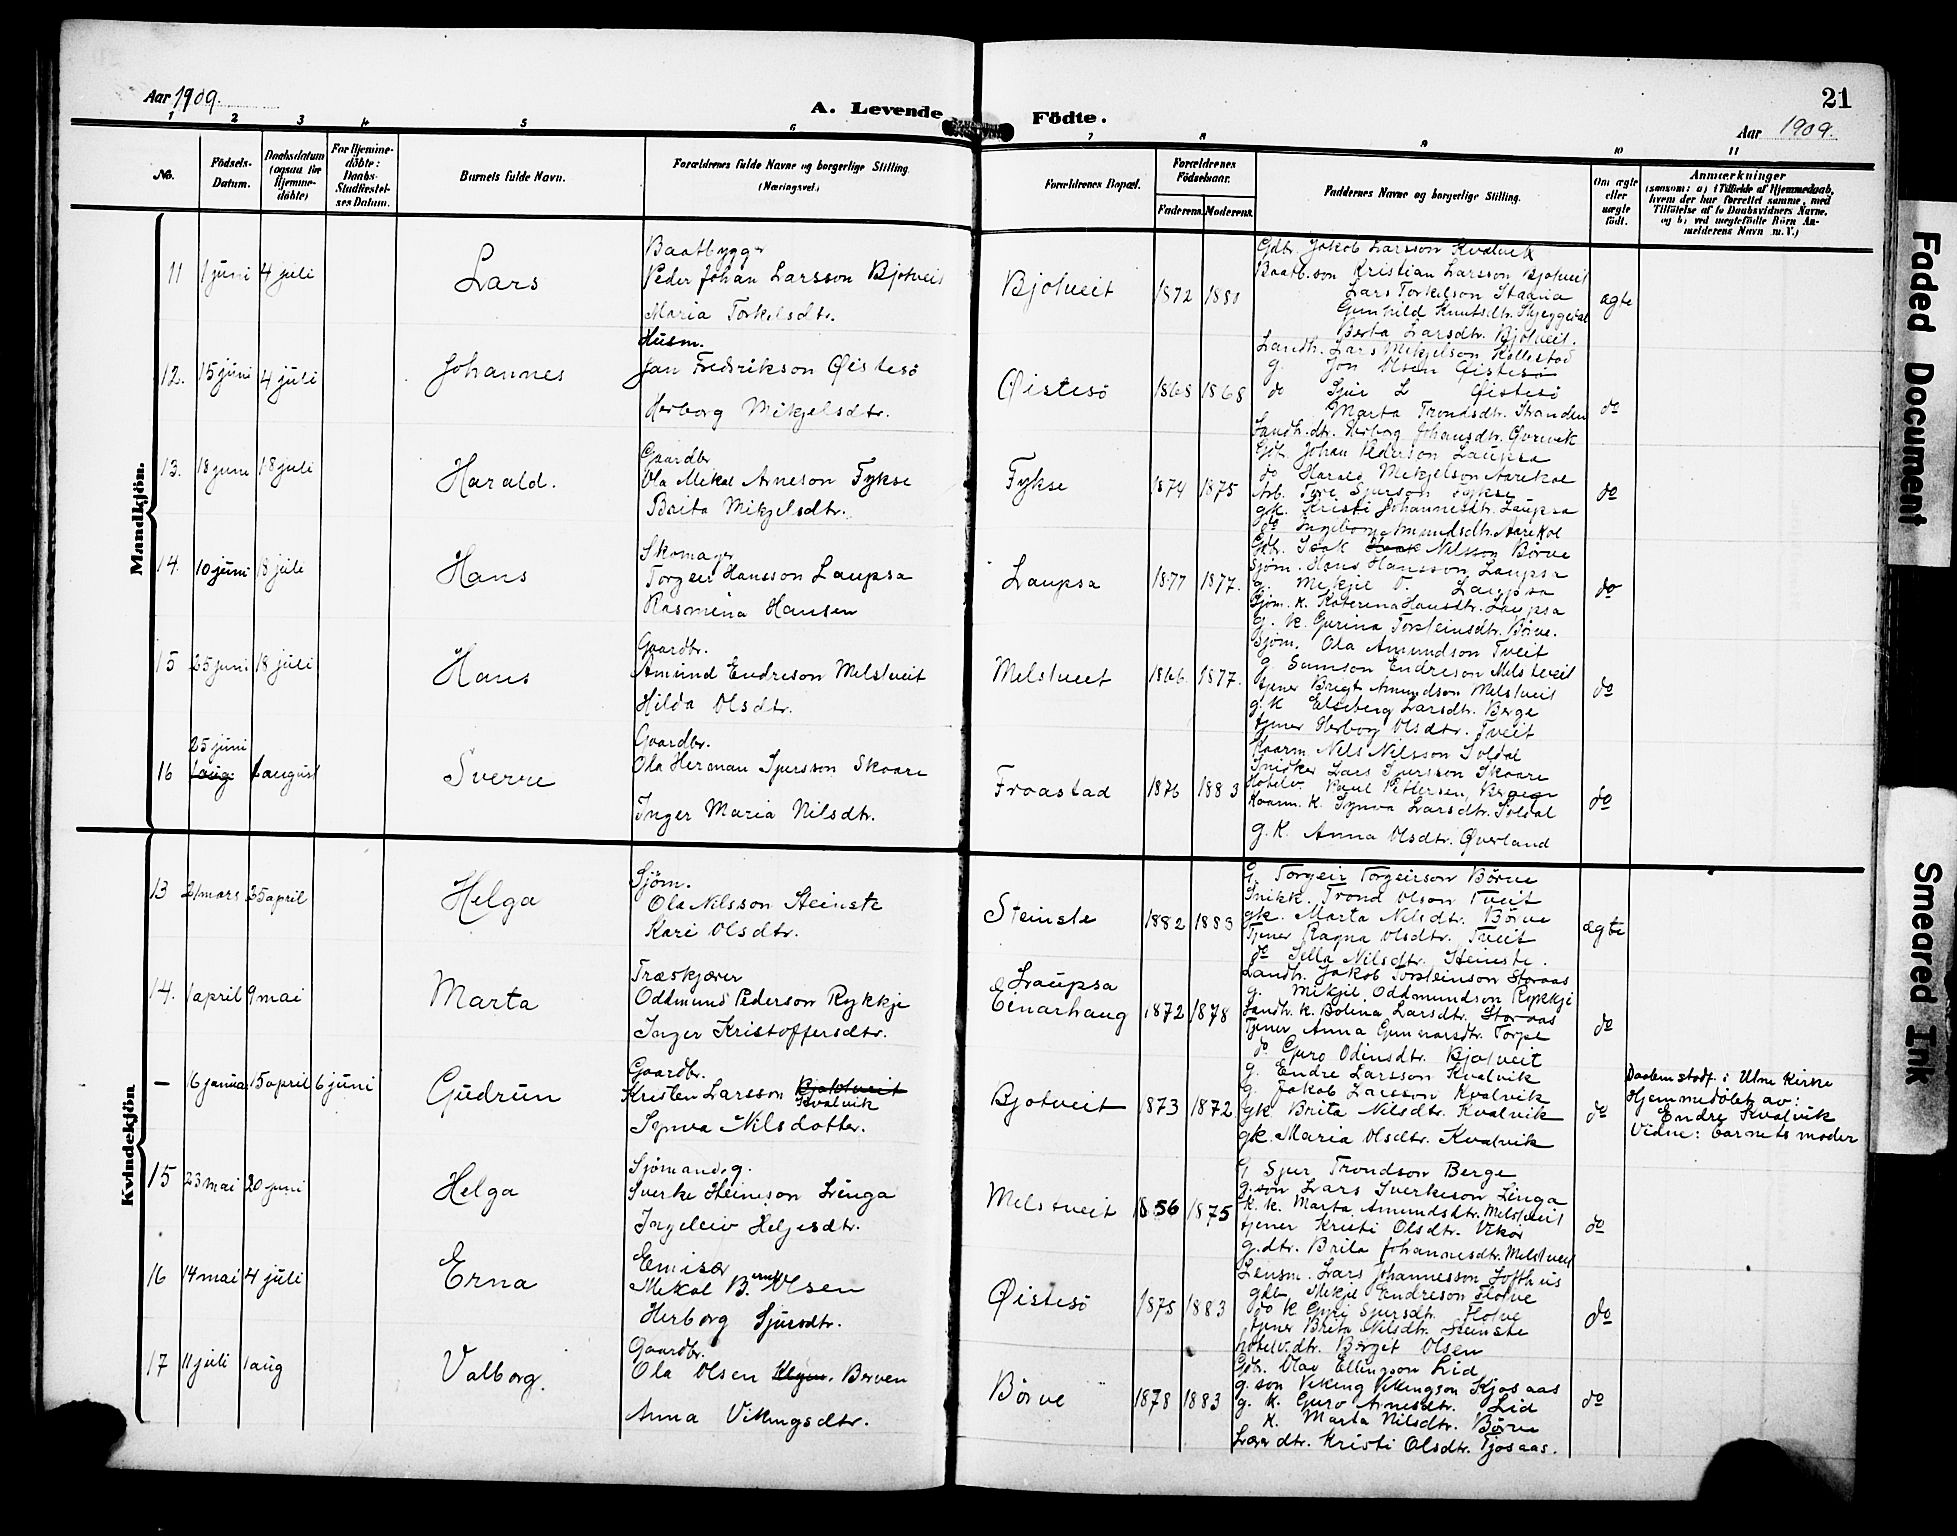 Aar 1909.
A. Levende Födte.
21
Aar 1909.
1 2 3 4 5 6 7 8 9 10 11
No.
Födsels-Datum.
Daabsdatum (ogsaa for Hjemme-døbte)
For Hjemme-döbte: Daabs-Stadfæstel-ses Datum.
Barnets fulde Navn.
Forældrenes fulde Navne og borgerlige Stilling (Næringsvei.)
Forældrenes Bopæl.
Forældrenes Födselsaar.
Faderens. Moderens.
Faddernes Navne og borgerlige Stilling.
Om ægte eller uægte födt.
Anmærkninger
(saasom: a) i Tilfælde af Hjemmedaab,
hvem der har forrettet samme, med
Tilföielse af to Daabsvidners Navne,
og b) ved uægtefödte Börn An-
melderens Navn m. V.)
Mandkjön.
11 1 juni 4 juli Lars
Baatbygg
Peder Johan Larsson Bjotveit
Maria Torkelsdtr.
Bjotveit 1872
Gdbr. Jakob Larsson Kvalvik
Baatb.son Kristian Larsson Bjotveit
Lars Torkelson Staana
Gunhild Knutsdtr. Skjeggedal
Berta Larsdtr. Bjotveit.
ægte
12. 15 juni 4 juli Johannes
Husm.
Jan Fredrikson Øistesö
Herborg Mikjelsdtr.
Øistesö 1868 1868
Landh. Lars Mikjelson Kollestad
g. Jon Olsen Øistesö
do Sjur L Øistesö
Marta Trondsdtr. Stranden
Landh.dtr. Herborg Johansdtr. Øvrevik
do
13. 18 juni 18 juli Harald.
Gaardbr.
Ola Mekal Arneson Fykse
Brita Mikjelsdtr.
Fykse 1874 1875
Gdb. Johan Pederson Laupsa
do Harald Mekjelson Aarekol
Arb. Tore Sjurson Fykse
gk. Kristi Johannesdtr. Laupsa
do Ingeborg Amundsdtr. Aarekol
do
14. 10 juni 18 juli Hans
Skomager
Torgeir Hansson Laupsa
Rasmina Hansen
Laupsa 1877 1877.
Gdb. Isak Nilsson Börve
Sjöm. Hans Hansson Laupsa
g. Mekjel O. Laupsa
Sjöm. k. Katerina Hansdtr. Laupsa
g. k. Gurina Torsteinsdtr. Börve.
do
15 25 juni 18 juli Hans
Gaardbr.
Amund Endreson Melstveit
Hilda Olsdtr.
Melstveit 1866. 1877.
Sjöm. Ola Amundson Tveit
g. Samson Endreson Melstveit
tjener Brigt Amundson Melstveit
g.k Elseberg Larsdtr. Berge
tjener Herborg Olsdtr. Tveit
do
16 25 juni 1 aug. 1 august Sverre
Gaardbr.
Ola Herman Sjursson Skaare
Inger Maria Nilsdtr.
Froastad 1876 1883
Kaarm. Nils Nilsson Soldal
Snidker Lars Sjursson Skaare
Hotelv. Paul Pettersen, Bergen
Kaarm. k. Synva Larsdtr. Soldal
g. k. Anna Olsdtr. Øverland
do
Kvindekjön
13 21 mars 25 april Helga
Sjöm.
Ola Nilsson Steinste
Kari Olsdtr.
Steinste 1882 1883
G. Torgeir Torgeirson Börve
Snikk. Trond Olson Tveit
gk. Marta Nilsdtr. Börve
Tjener Ragna Olsdtr. Tveit
do Sella Nilsdtr. Steinste.
ægte
14. 1 april 9 mai Marta
Træskjærer
Oddmund Pederson Rykkje
Inger Kristoffersdtr.
Laupsa
Einarhaug 1872 1878
Landh. Jakob Torsteinson Storaas
g. Mikjel Oddmundson Rykkje
Landh. k. Bolina Larsdtr. Storaas
Tjener Anna Gunnarsdtr. Torpe
do Guro Odinsdtr. Bjotveit
do
— 16 januar 15 april 6 juni Gudrun
Gaardbr.
Kristen Larsson Bjotveit Kvalvik
Synva Nilsdotter.
Bjotveit 1873 1872
g. Endre Larsson Kvalvik
G. Jakob Larsson Kvalvik
gk Brita Nilsdtr. Kvalvik
gk. Maria Olsdtr. Kvalvik
do
Daaben stadf. i Ulne kirke
Hjemmedöbt av:
Endre Kvalvik
Vidne: barnets moder
15 23 mai 20 juni Helga
Sjömand, g.
Sverke Heineson Linga
Ingeleiv Heljesdtr.
Melstveit 1856 1875
G Sjur Trondson Berge
g.son Lars Sverkeson Linga
k. k. Marta Amundsdtr. Melstveit
tjener Kristi Olsdtr. Vikör
g.dtr. Brita Johannesdtr. Melstveit
do
16 14 mai 4 juli Erna
Emisær
Mekal B. Olsen
Herborg Sjursdtr.
Øistesö 1875 1883
Lensm. Lars Johannesson Softhus
gdb. Mekje Endreson Flotve
do k Guri Sjursdtr. Flotve
tjener Brita Nilsdtr. Steinste
hotelv.dtr. Bergit Olsen
do
17 11 juli 1 aug Valborg.
Gaardbr.
Ola Olsen Berven
Anna Vikingsdtr.
Börve 1878 1883
Gdb. Olav Ellingson Lid
g. son Viking Vikingson Kjosaas
g. k. Guro Arnesdtr. Lid
k. Marta Nilsdtr. Börve
Lærer dtr. Kristi Olsdtr. Tjosaas.
do
Faded Document
Smeared Ink